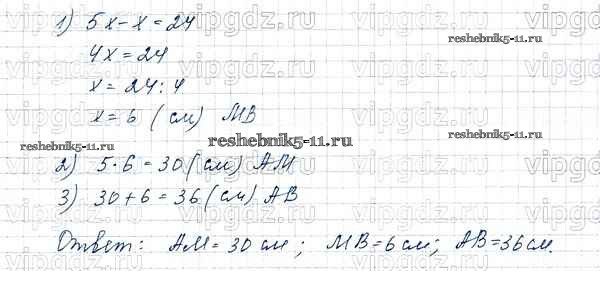 1) 5x - x = 24
4x = 24
reshebnik5-11.ru
x = 24 : 4
x = 6 (см) МВ
reshebnik5-11.ru
reshebnik5-11.ru
reshebnik5-11.ru
2) 5 · 6 = 30 (см) АМ
3) 30 + 6 = 36 (см) АВ
Ответ: АМ = 30 см ; МВ = 6 см; АВ = 36 см.
vipgdz.ru